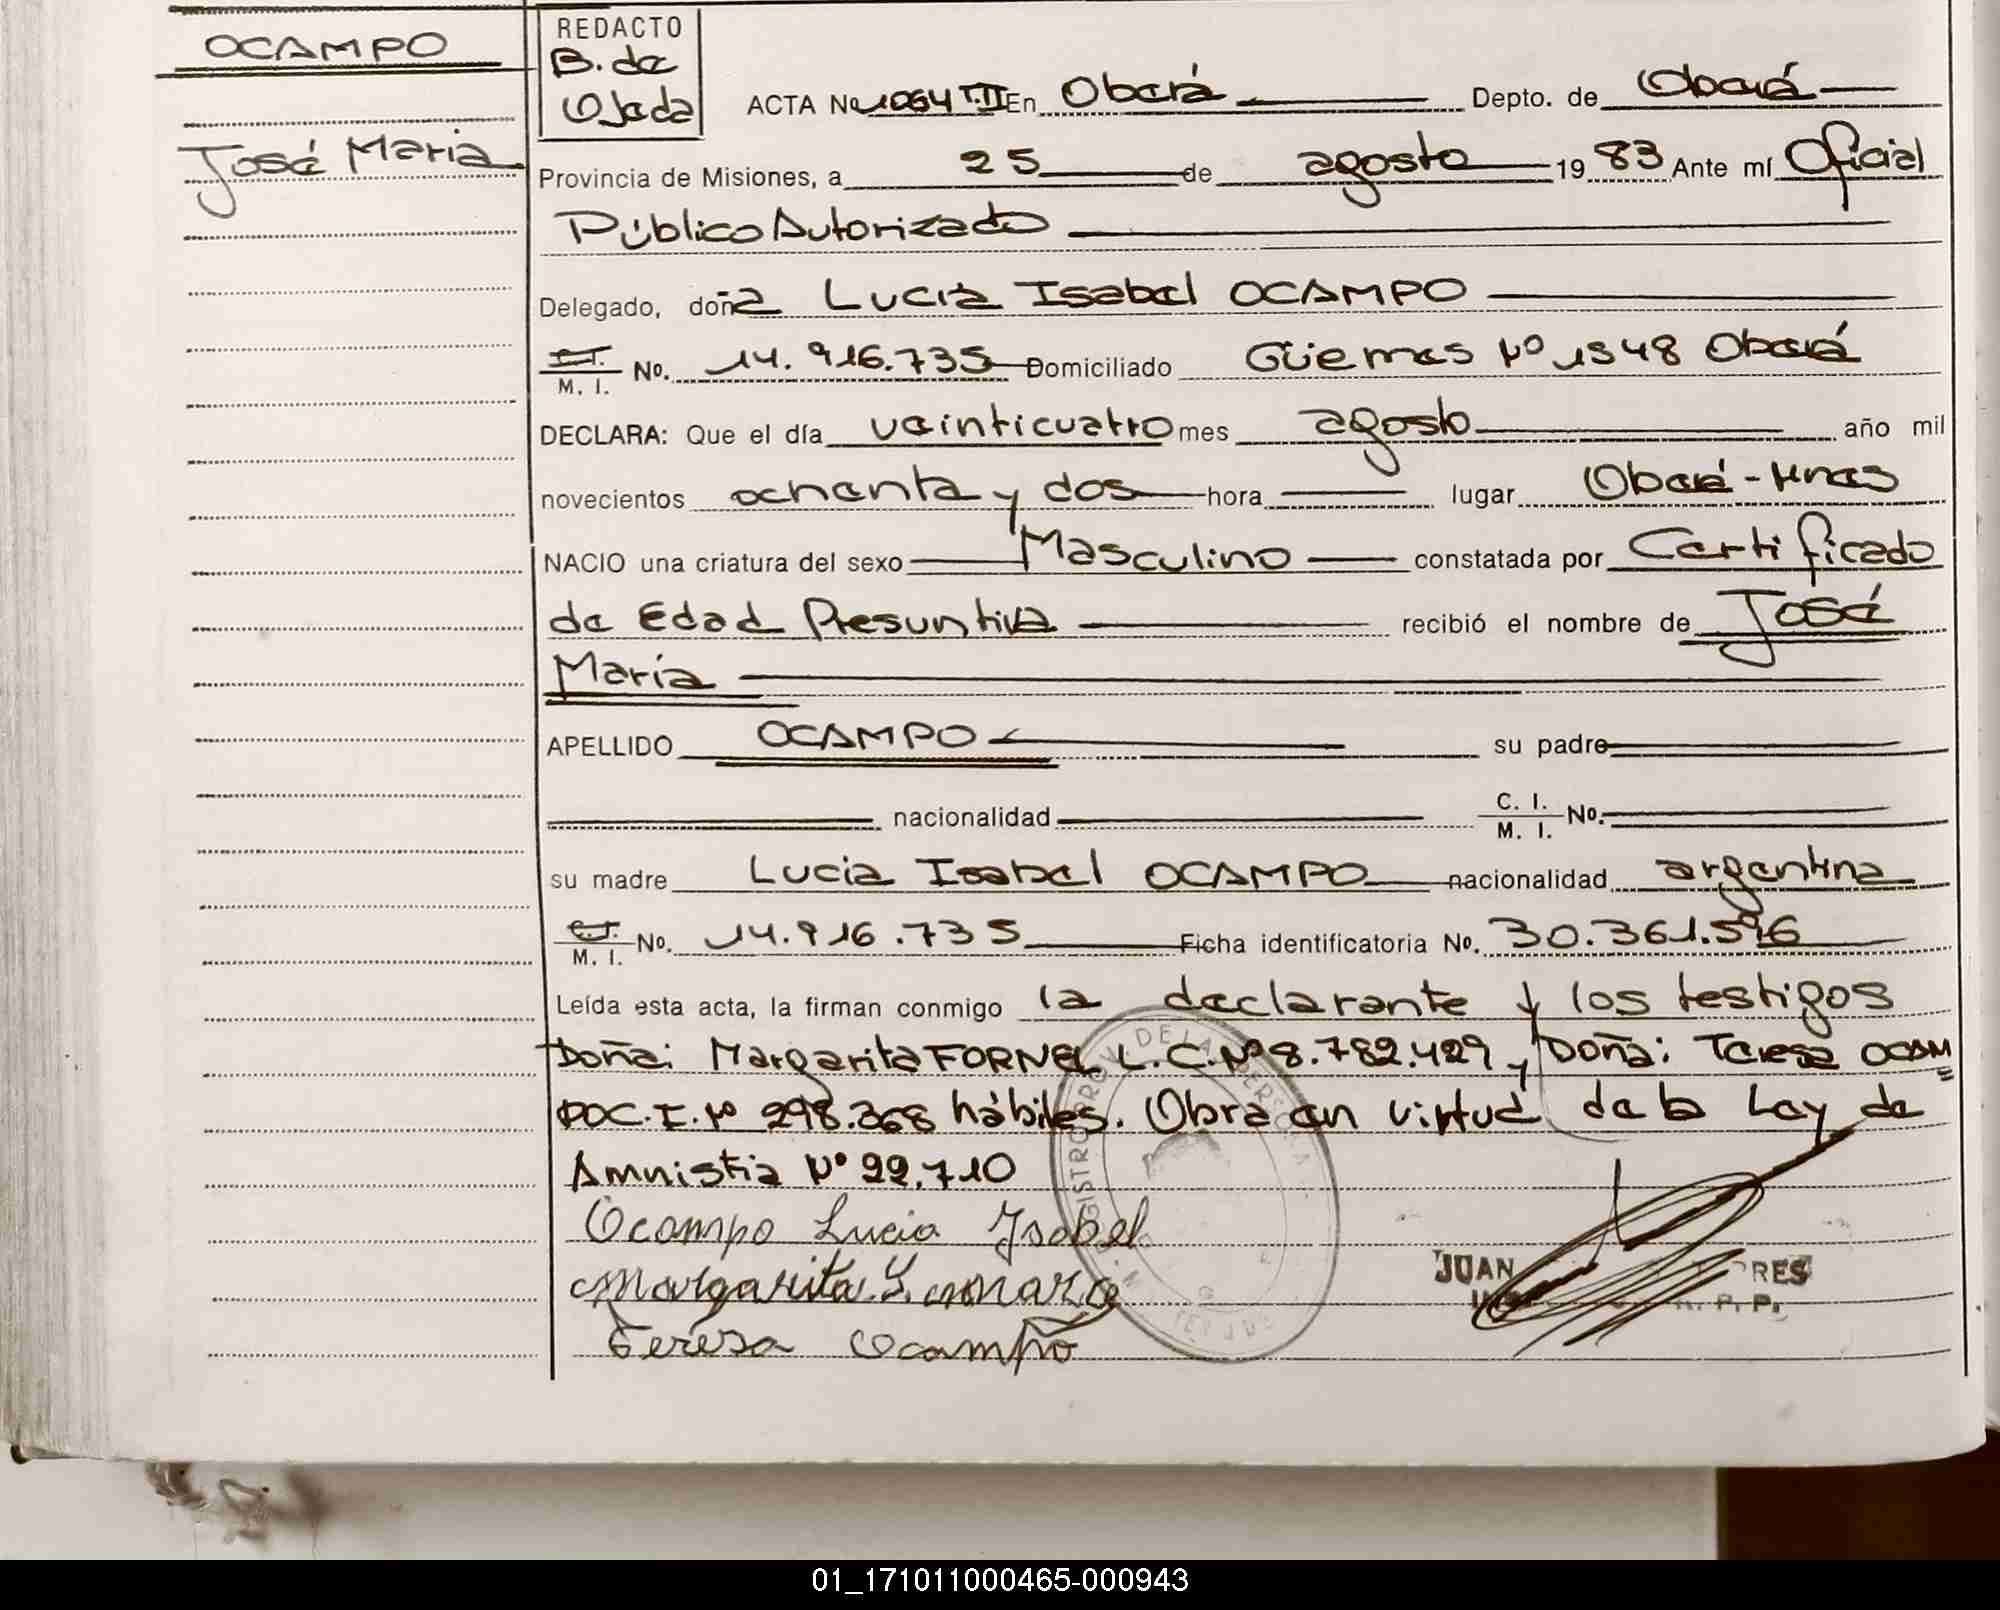 OCAMPO
José Maria
REDACTO
B. de
Ojeda
ACTA No 1064 T.II En Oberá Depto. de Oberá
Provincia de Misiones, a 25 de agosto 1983 Ante mí Oficial
Público Autorizado
Delegado, doña Lucia Isabel OCAMPO
C.I. M. I. No. 14.916.735 Domiciliado Güemes Nº 1348 Oberá
DECLARA: Que el día veinticuatro mes agosto año mil
novecientos ochenta y dos hora lugar Oberá - Mnes
NACIO una criatura del sexo Masculino constatada por Certificado
de Edad Presuntiva recibió el nombre de José
María
APELLIDO OCAMPO su padre
nacionalidad C. I. M. I. No.
su madre Lucia Isabel OCAMPO nacionalidad argentina
C.I. M. I. No. 14.916.735 Ficha identificatoria No. 30.361.596
Leída esta acta, la firman conmigo la declarante y los testigos
Doña: Margarita FORNEL L.C. Nº 8.782.429 y Doña: Teresa OCAM
PO C.I. Nº 298.368 hábiles. Obra en virtud de la Ley de
Amnistia Nº 22.710
Ocampo Lucia Isabel
Margarita
Teresa Ocampo
JUAN RES
P. P.
REGISTRO PROV. DE LAS PERSONAS
01_171011000465-000943